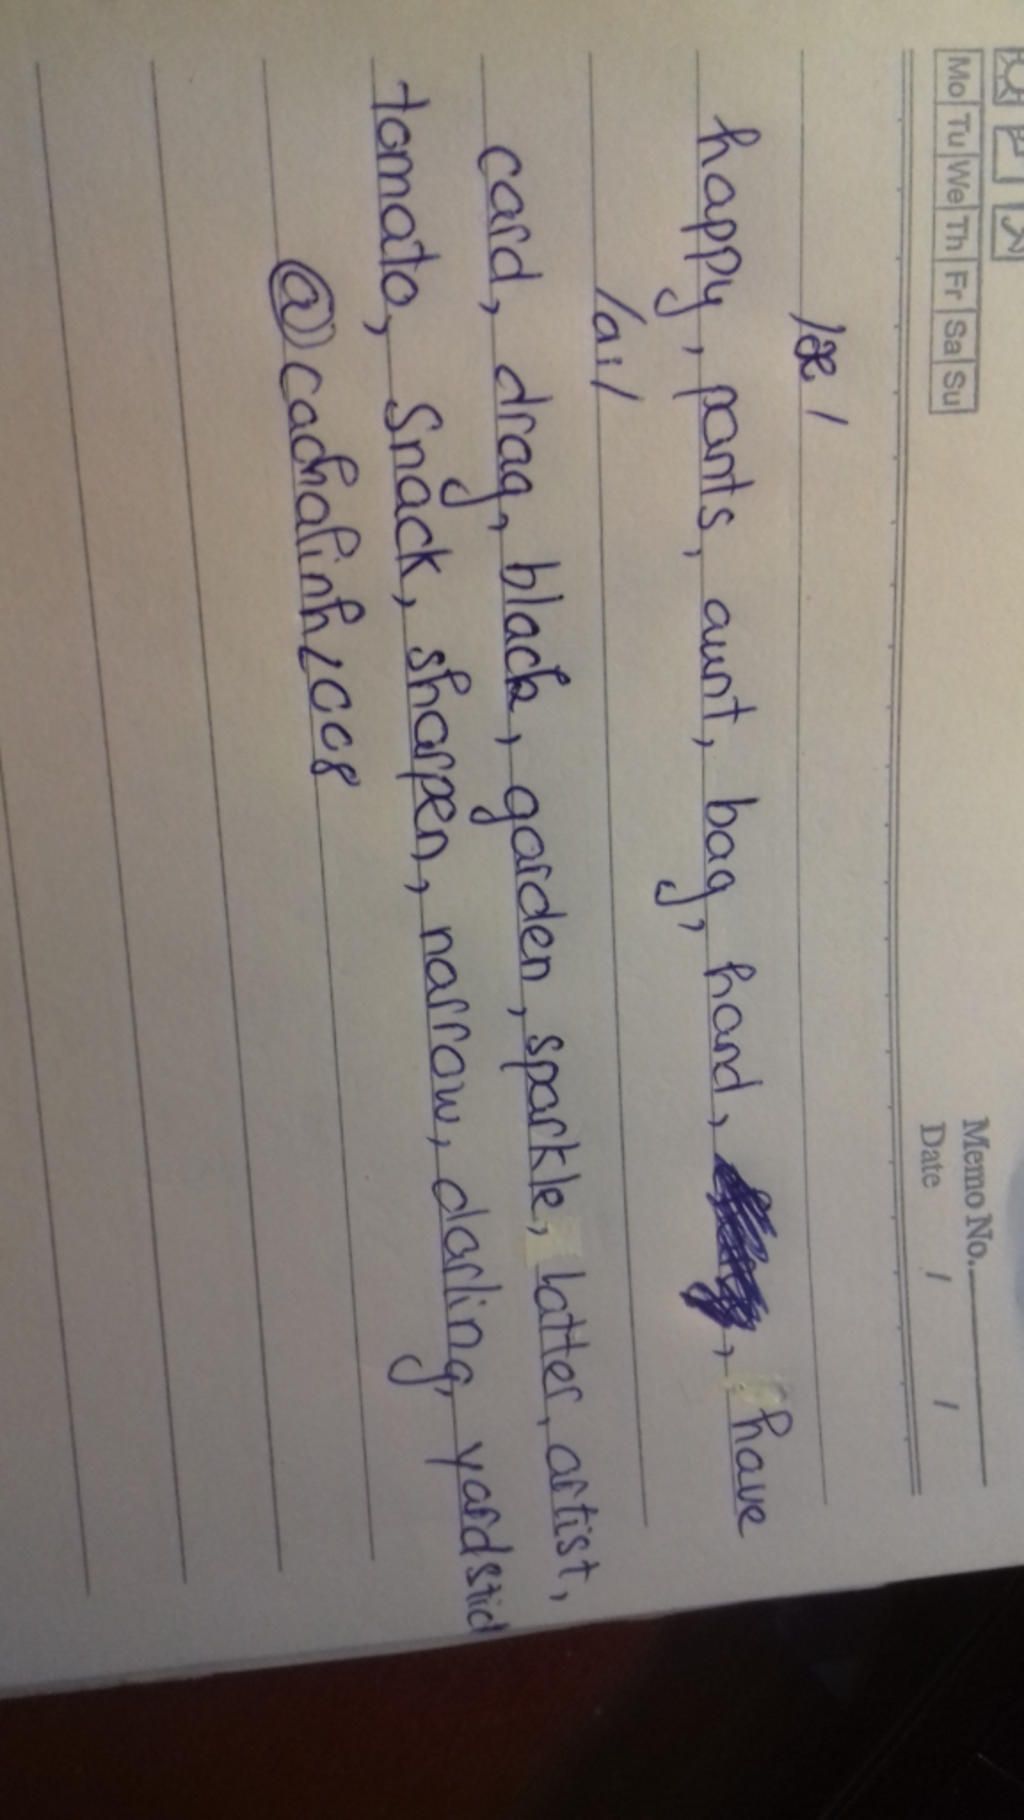 Mo Tu We Th Fr Sa Su
Memo No.
Date / /
/æ/
happy, pants, aunt, bag, hand, , have
/a:/
card, drag, black, garden, sparkle, latter, artist,
tomato, Snack, sharpen, narrow, darling, yardstick
@cachalinh2008